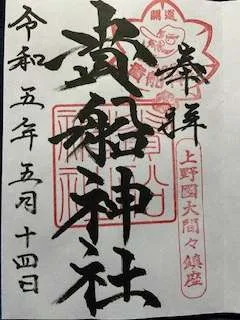 奉拝
上野國大間々鎮座
貴船神社
令和五年五月十四日
開運